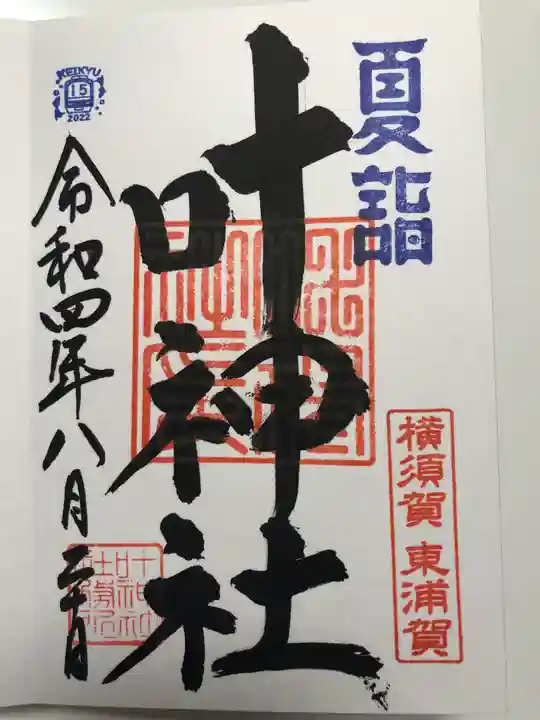 夏詣
横須賀 東浦賀
叶神社
KEIKYU
15
2022
令和四年八月二十日